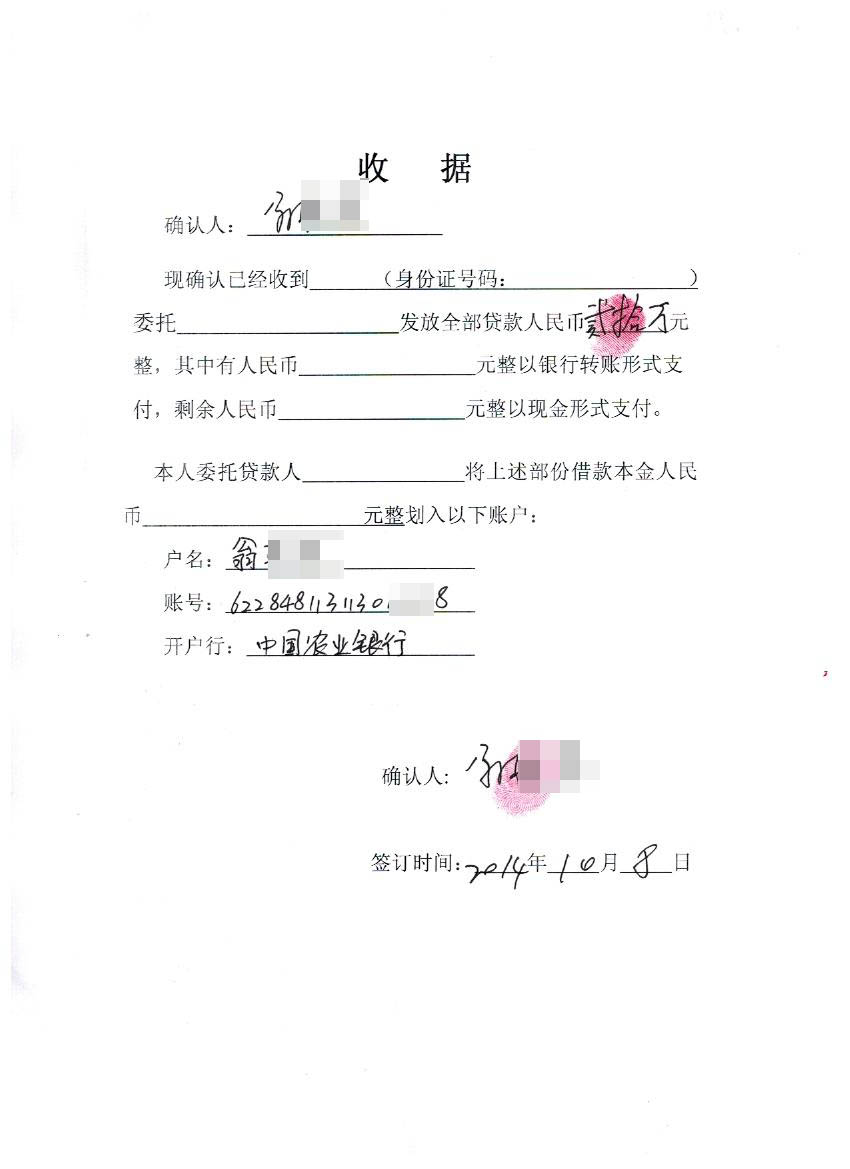 收 据
确认人：
现确认已经收到______（身份证号码：__________________）
委托____________________发放全部贷款人民币贰拾万元
整，其中有人民币________________元整以银行转账形式支
付，剩余人民币________________元整以现金形式支付。
本人委托贷款人______________将上述部份借款本金人民
币____________________元整划入以下账户：
户名：翁
账号：622848113113018
开户行：中国农业银行
确认人：
签订时间：2014年10月8日